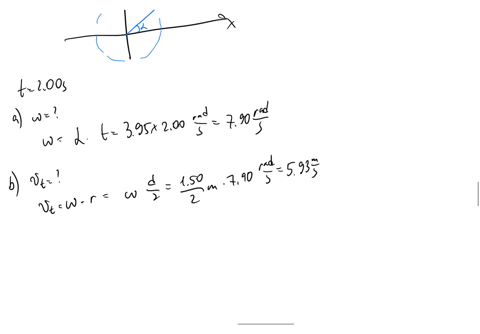 α
x
t=2.00s
a) ω=?
ω = α · t = 3.95 × 2.00 rad/s = 7.90 rad/s
b) v_t=?
v_t = ω · r = ω d/2 = 1.50/2 m · 7.90 rad/s = 5.93 m/s